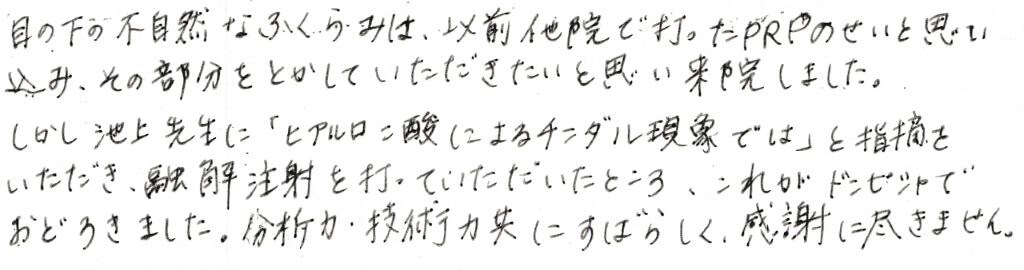 目の下の不自然なふくらみは、以前他院で打ったPRPのせいと思い
込み、その部分をとかしていただきたいと思い来院しました。
しかし池上先生に「ヒアルロン酸によるチンダル現象では」と指摘を
いただき、融解注射を打っていただいたところ、これがドンピシャで
おどろきました。分析力・技術力共にすばらしく、感謝に尽きません。